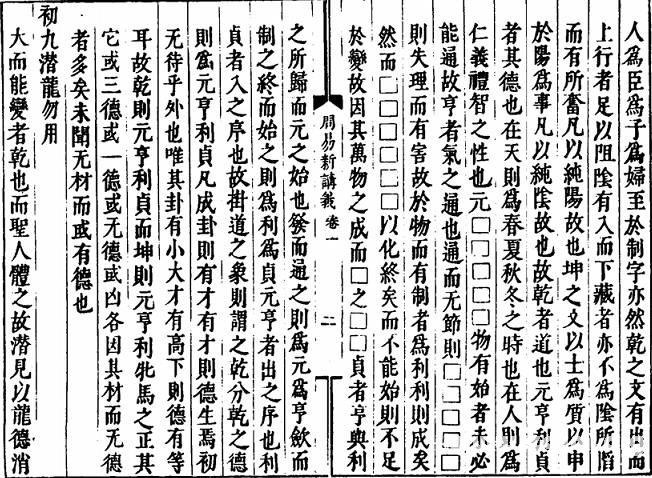 人為臣為子為婦至於制字亦然乾之文有出而
上行者足以阻陰有入而下藏者亦不為陰所陷
而有所奮凡以純陽故也坤之文以士為質以申
於陽為事凡以純陰故也故乾者道也元亨利貞
者其德也在天則為春夏秋冬之時也在人則為
仁義禮智之性也元□□□□□物有始者未必
能通故亨者氣之通也通而无節則□□□□
則失理而有害故於物而有制者為利利則成矣
然而□□□□□□以化終矣而不能始則不足
於變故因其萬物之成而□之□□貞者亨與利
周易新講義 卷一 二
之所歸而元之始也發而通之則為元為亨歛而
制之終而始之則為利為貞元亨者出之序也利
貞者入之序也故掛道之象則謂之乾分乾之德
則為元亨利貞凡成卦則有才有才則德生焉初
无待乎外也唯其卦有小大才有高下則德有等
耳故乾則元亨利貞而坤則元亨利牝馬之正其
它或三德或一德或无德或凶各因其材而无德
者多矣未聞无材而或有德也
初九潛龍勿用
大而能變者乾也而聖人體之故潛見以龍德消